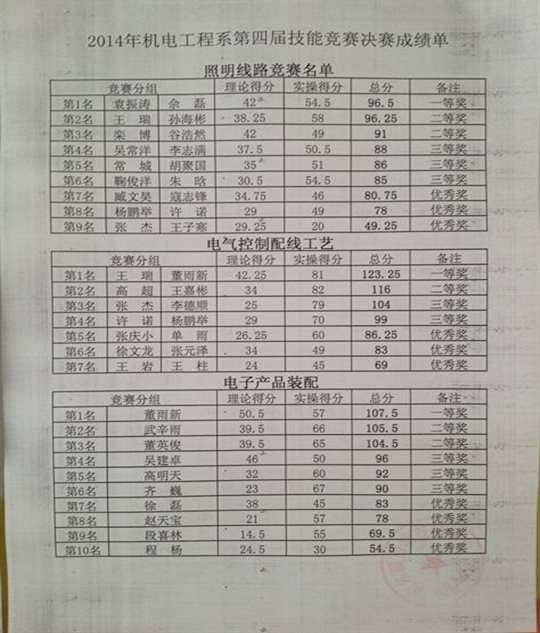 2014年机电工程系第四届技能竞赛决赛成绩单
照明线路竞赛名单
竞赛分组 理论得分 实操得分 总分 备注
第1名 袁振涛 佘磊 42 54.5 96.5 一等奖
第2名 王瑞 孙海彬 38.25 58 96.25 二等奖
第3名 栾博 谷浩然 42 49 91 二等奖
第4名 吴常洋 李志满 37.5 50.5 88 三等奖
第5名 常城 胡聚国 35 51 86 三等奖
第6名 鞠俊洋 朱晗 30.5 54.5 85 三等奖
第7名 臧文昊 寇志锋 34.75 46 80.75 优秀奖
第8名 杨鹏举 许诺 29 49 78 优秀奖
第9名 张杰 王子寒 29.25 20 49.25 优秀奖
电气控制配线工艺
竞赛分组 理论得分 实操得分 总分 备注
第1名 王瑞 董雨新 42.25 81 123.25 一等奖
第2名 高超 王嘉彬 34 82 116 二等奖
第3名 张杰 李德顺 25 79 104 三等奖
第4名 许诺 杨鹏举 29 70 99 三等奖
第5名 张庆小 单雨 26.25 60 86.25 优秀奖
第6名 徐文龙 张元泽 34 49 83 优秀奖
第7名 王岩 王柱 24 45 69 优秀奖
电子产品装配
竞赛分组 理论得分 实操得分 总分 备注
第1名 董雨新 50.5 57 107.5 一等奖
第2名 武辛雨 39.5 66 105.5 二等奖
第3名 董英俊 39.5 65 104.5 二等奖
第4名 吴建卓 46 50 96 三等奖
第5名 高明天 32 60 92 三等奖
第6名 齐巍 23 67 90 三等奖
第7名 徐磊 38 45 83 优秀奖
第8名 赵天宝 21 57 78 优秀奖
第9名 段喜林 14.5 55 69.5 优秀奖
第10名 程杨 24.5 30 54.5 优秀奖